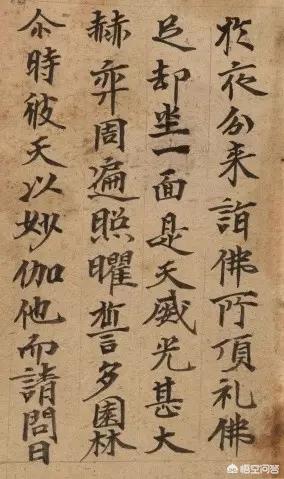 扵夜分来詣佛所頂礼佛
足却坐一面是天威光甚大
赫弈周遍照曜誓多園林
尒時彼天以妙伽他而請問曰
悟空问答